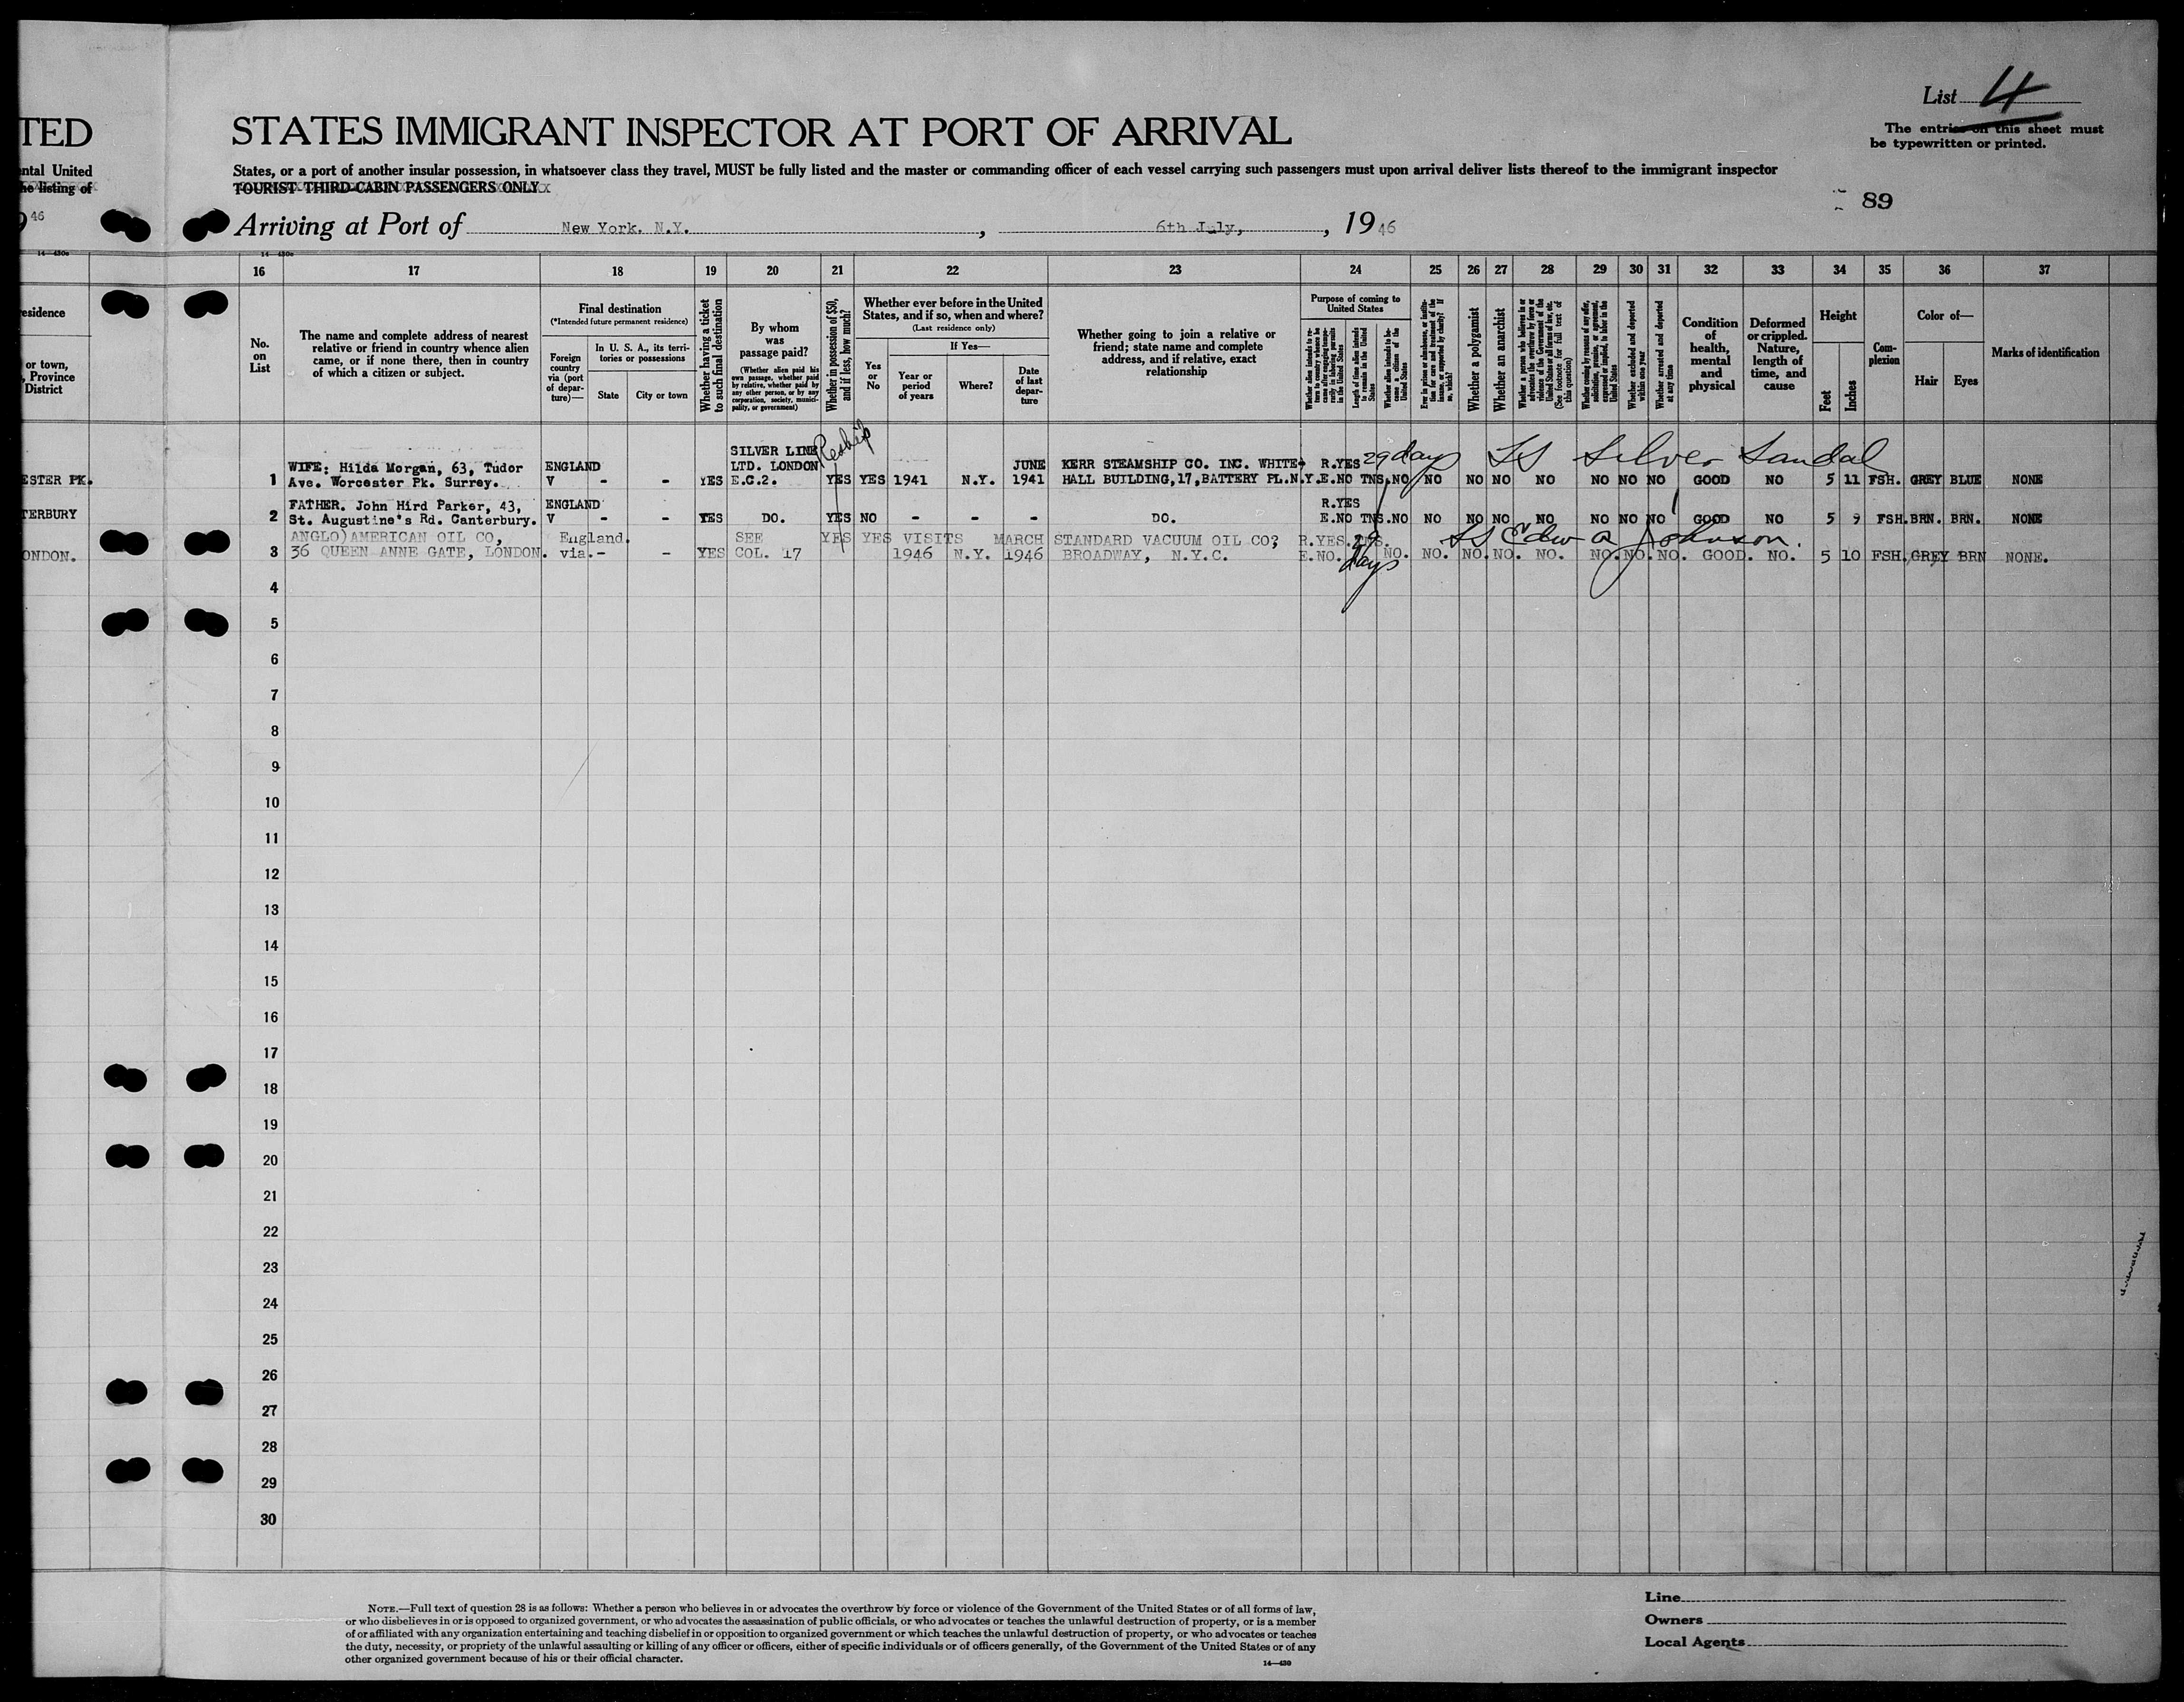 List 4
The entries on this sheet must
be typewritten or printed.
TED
STATES IMMIGRANT INSPECTOR AT PORT OF ARRIVAL
ntal United
States, or a port of another insular possession, in whatsoever class they travel, MUST be fully listed and the master or commanding officer of each vessel carrying such passengers must upon arrival deliver lists thereof to the immigrant inspector
he listing of
TOURIST THIRD-CABIN PASSENGERS ONLY
89
9 46
Arriving at Port of New York. N.Y. , 6th July, , 19 46
14—430c
14—430c
16 17 18 19 20 21 22 23 24 25 26 27 28 29 30 31 32 33 34 35 36 37
esidence
or town,
, Province
District
No.
on
List
The name and complete address of nearest
relative or friend in country whence alien
came, or if none there, then in country
of which a citizen or subject.
Final destination
(*Intended future permanent residence)
Foreign
country
via (port
of depar-
ture)—
In U. S. A., its terri-
tories or possessions
State
City or town
Whether having a ticket
to such final destination
By whom
was
passage paid?
(Whether alien paid his
own passage, whether paid
by relative, whether paid by
any other person, or by any
corporation, society, munici-
pality, or government)
Whether in possession of $50,
and if less, how much?
Whether ever before in the United
States, and if so, when and where?
(Last residence only)
Yes
or
No
If Yes—
Year or
period
of years
Where?
Date
of last
depar-
ture
Whether going to join a relative or
friend; state name and complete
address, and if relative, exact
relationship
Purpose of coming to
United States
Whether alien intends to re-
turn to country whence he
came after engaging tempo-
rarily in laboring pursuits
in the United States
Length of time alien intends
to remain in the United
States
Whether alien intends to be-
come a citizen of the
United States
Ever in prison or almshouse, or institu-
tion for care and treatment of the
insane, or supported by charity? If
so, which?
Whether a polygamist
Whether an anarchist
Whether a person who believes in or
advocates the overthrow by force or
violence of the Government of the
United States or all forms of law, etc.
(See footnote for full text of
this question)
Whether coming by reason of any offer,
solicitation, promise, or agreement,
expressed or implied, to labor in the
United States
Whether excluded and deported
within one year
Whether arrested and deported
at any time
Condition
of
health,
mental
and
physical
Deformed
or crippled.
Nature,
length of
time, and
cause
Height
Feet
Inches
Com-
plexion
Color of—
Hair
Eyes
Marks of identification
SILVER LINE Reship
WIFE: Hilda Morgan, 63, Tudor ENGLAND LTD. LONDON JUNE KERR STEAMSHIP CO. INC. WHITE- R.YES 29 days SS Silver Sandal
ESTER PK. 1 Ave. Worcester Pk. Surrey. V - - YES E.C.2. YES YES 1941 N.Y. 1941 HALL BUILDING,17,BATTERY PL.N.Y. E.NO TNS. NO NO NO NO NO NO NO NO GOOD NO 5 11 FSH. GREY BLUE NONE
FATHER. John Hird Parker, 43, ENGLAND R.YES
TERBURY 2 St. Augustine's Rd. Canterbury. V - - YES DO. YES NO - - - DO. E.NO TNS. NO NO NO NO NO NO NO NO GOOD NO 5 9 FSH. BRN. BRN. NONE
ANGLO)AMERICAN OIL CO, England. SEE YES YES VISITS MARCH STANDARD VACUUM OIL CO; R.YES. 29 SS Edw a Johnson.
ONDON. 3 36 QUEEN ANNE GATE, LONDON. via.- - YES COL. 17 1946 N.Y. 1946 BROADWAY, N.Y.C. E.NO. days NO. NO. NO. NO. NO. NO. NO. NO. GOOD. NO. 5 10 FSH. GREY BRN NONE.
4
5
6
7
8
9
10
11
12
13
14
15
16
17
18
19
20
21
22
23
24
25
26
27
28
29
30
NOTE.—Full text of question 28 is as follows: Whether a person who believes in or advocates the overthrow by force or violence of the Government of the United States or of all forms of law,
or who disbelieves in or is opposed to organized government, or who advocates the assassination of public officials, or who advocates or teaches the unlawful destruction of property, or is a member
of or affiliated with any organization entertaining and teaching disbelief in or opposition to organized government or which teaches the unlawful destruction of property, or who advocates or teaches
the duty, necessity, or propriety of the unlawful assaulting or killing of any officer or officers, either of specific individuals or of officers generally, of the Government of the United States or of any
other organized government because of his or their official character.
14—430
Line
Owners
Local Agents